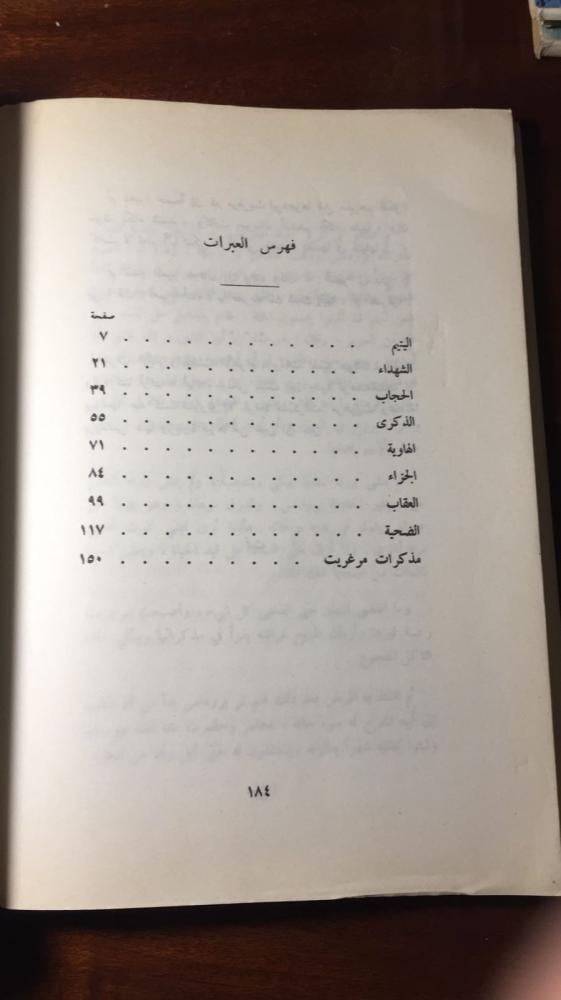 فهرس العبرات
صفحة
اليتيم . . . . . . . . . . . ٧
الشهداء . . . . . . . . . . . ٢١
الحجاب . . . . . . . . . . . ٣٩
الذكرى . . . . . . . . . . . ٥٥
الهاوية . . . . . . . . . . . ٧١
الجزاء . . . . . . . . . . . ٨٤
العقاب . . . . . . . . . . . ٩٩
الضحية . . . . . . . . . . . ١١٧
مذكرات مرغريت . . . . . . . . . ١٥٠
١٨٤